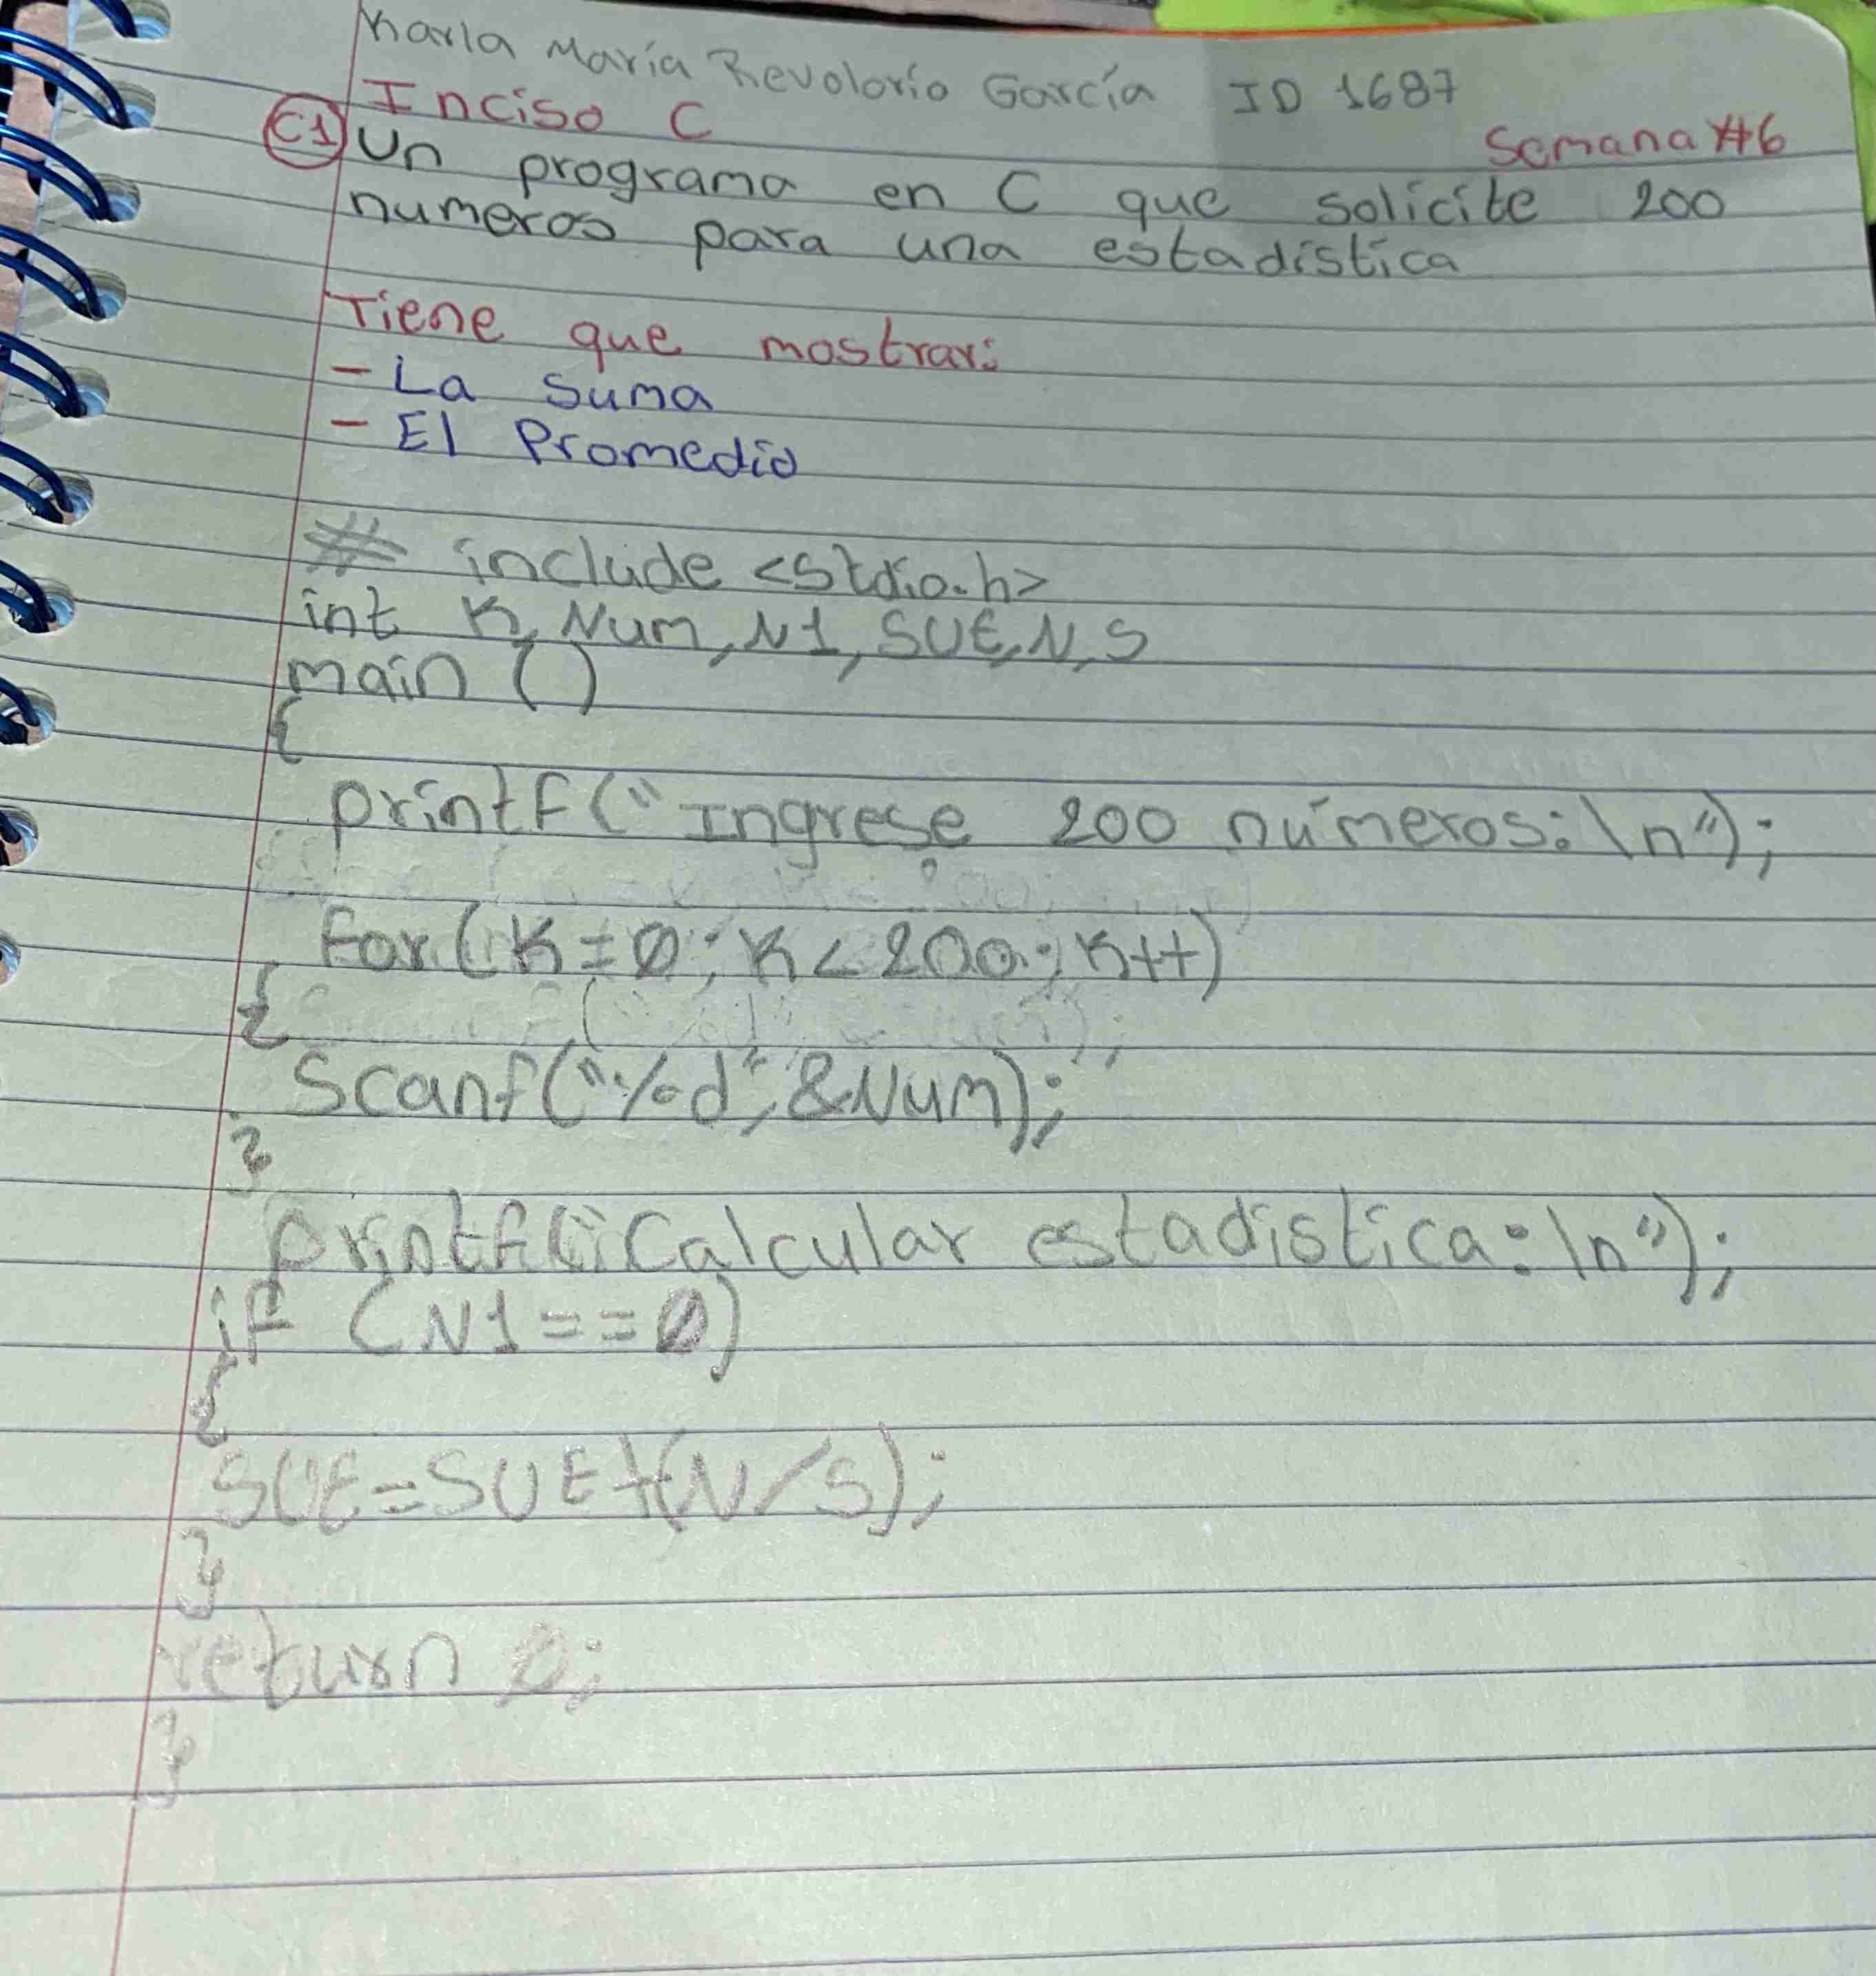 Karla María Revolorio García ID 1687
Inciso C
Semana #6
C1) Un programa en C que solicite 200
numeros para una estadística
Tiene que mostrar:
- La Suma
- El Promedio
# include <stdio.h>
int K, Num, N1, SUE, N, S
main ()
{
printf("Ingrese 200 números:\n");
for(K=0; K<200; K++)
{
Scanf("%d", &Num);
}
printf("Calcular estadistica:\n");
if (N1==0)
{
SUE=SUE+(N/S);
}
return 0;
}